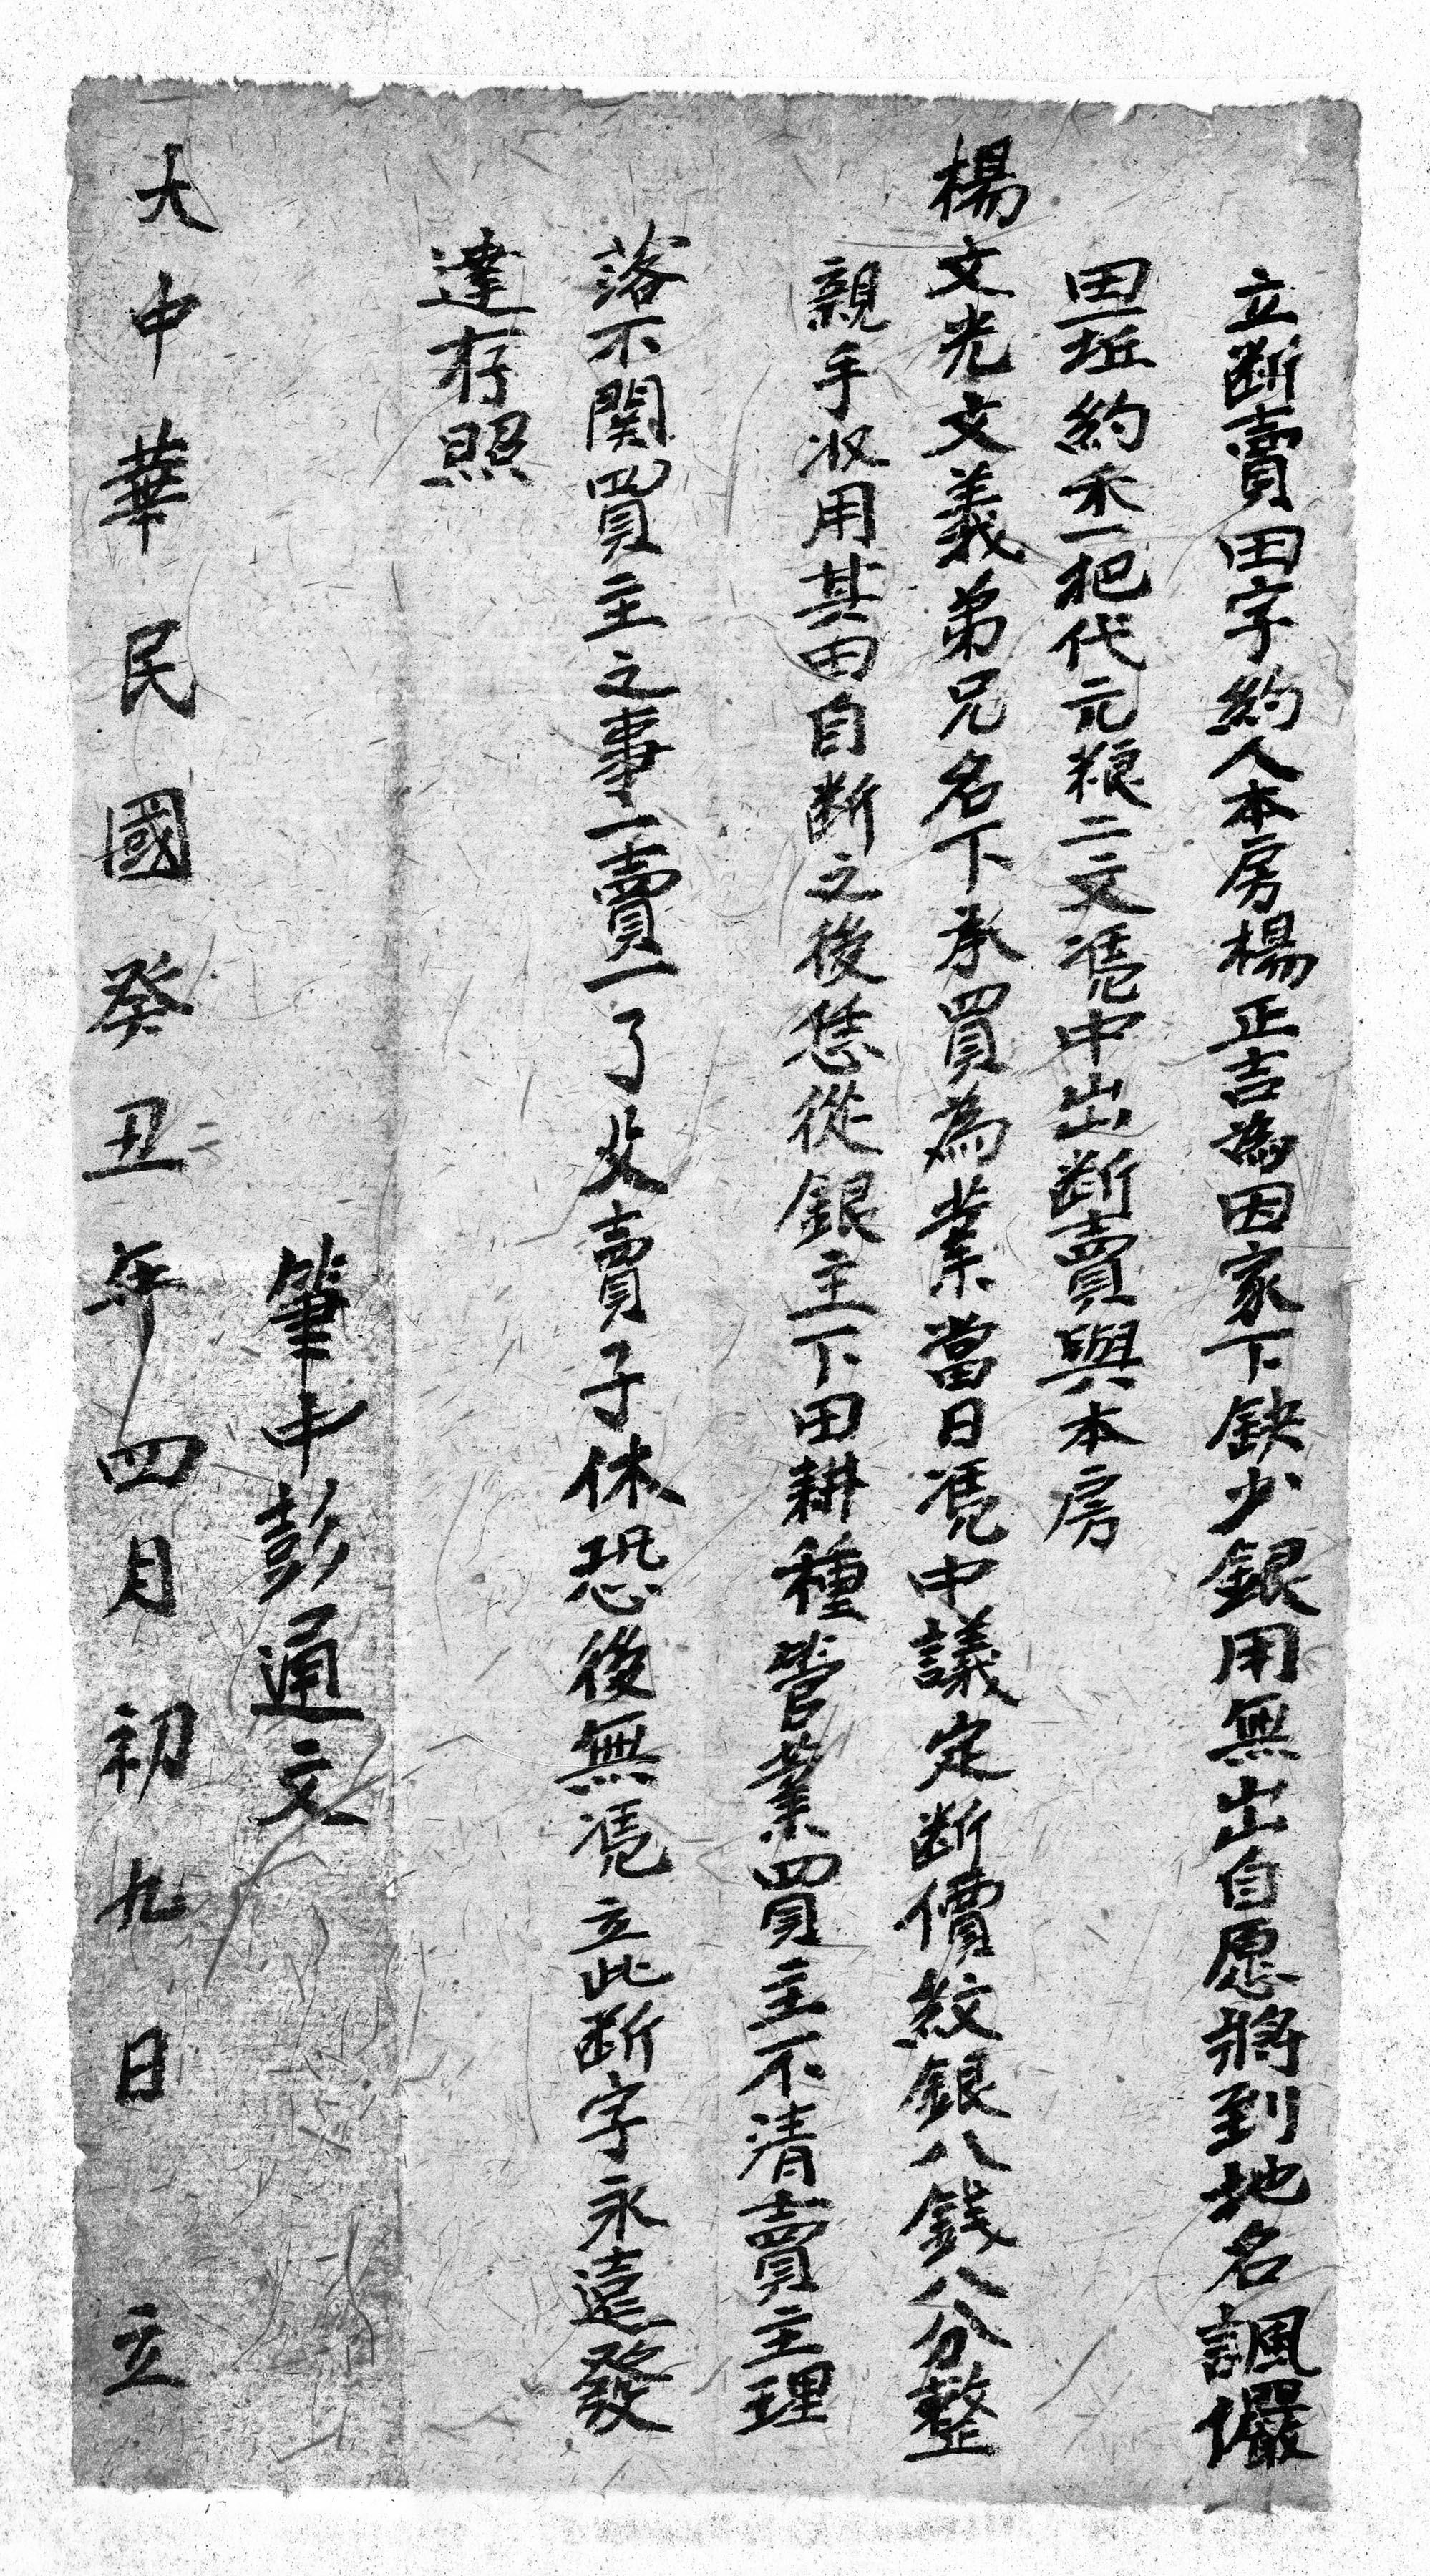 立断賣田字約人本房楊正吉為因家下缺少銀用無出自愿將到地名諷儼
田坵約禾一把代元粮二文凴中出断賣與本房
楊文光文義弟兄名下承買為業當日凴中議定断價紋銀八錢八分整
親手収用其田自断之後恁從銀主下田耕種管業買主不清賣主理
落不関買主之事一賣一了父賣子休恐後無凴立此断字永遠發
達存照
筆中彭通文
大中華民國癸丑年四月初九日立